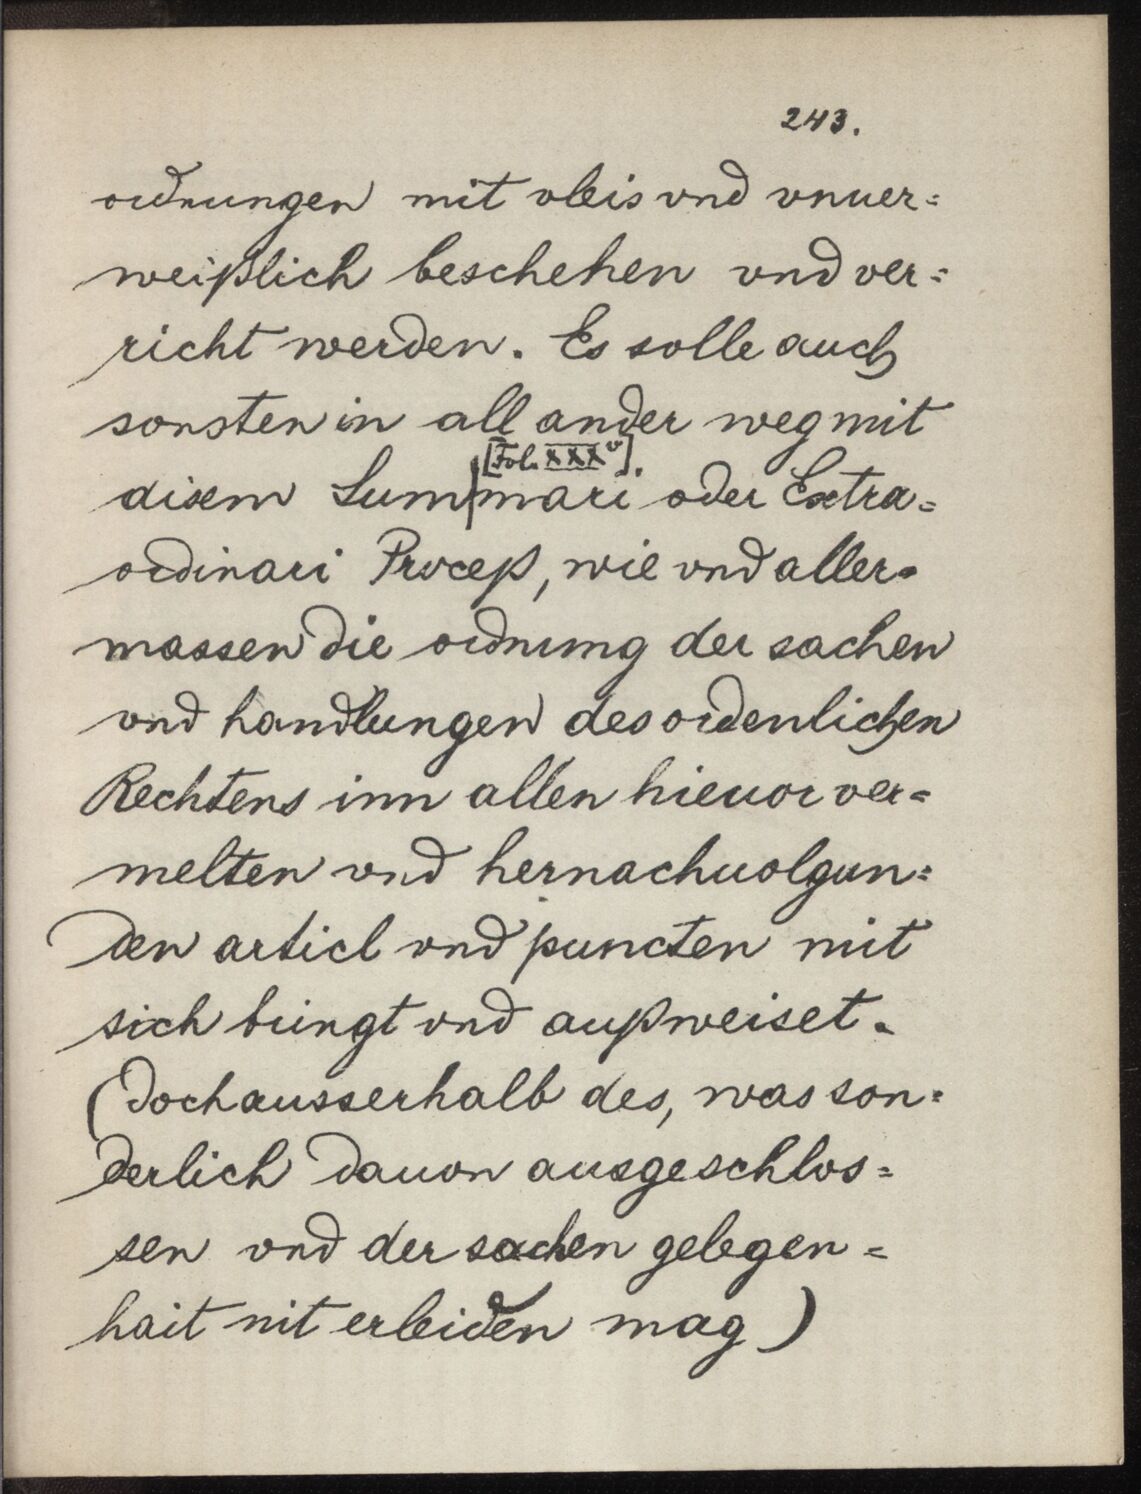 243.
ordnungen mit vleis vnd vnuer=
weißlich beschehen vnd ver=
richt werden. Es solle auch
sonsten in all ander weg mit
[Fol. XXXv].
disem Sum|mari oder Extra=
ordinari Proceß, wie vnd aller=
massen die ordnung der sachen
vnd handlungen des ordenlichen
Rechtens inn allen hieuor ver=
melten vnd hernachuolgun=
den articl vnd puncten mit
sich bringt vnd außweiset.
(Doch ausserhalb des, was son=
derlich dauon ausgeschlos=
sen vnd der sachen gelegen=
hait nit erleiden mag)